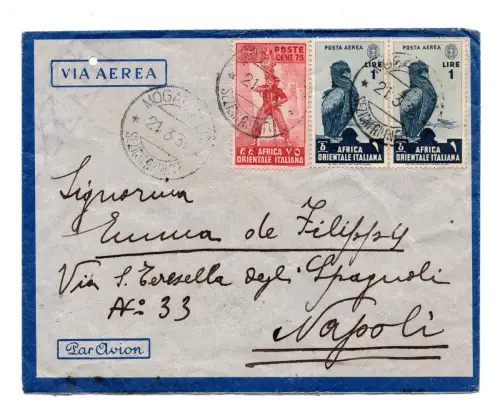 VIA AEREA
POSTE
CENT 75
AFRICA
ORIENTALE ITALIANA
POSTA AEREA
LIRE
1
AFRICA
ORIENTALE ITALIANA
POSTA AEREA
LIRE
1
AFRICA
ORIENTALE ITALIANA
21.3
Signorina
Emma de Filippy
Via S. Teresella degli Spagnoli
No 33
Napoli
Par Avion